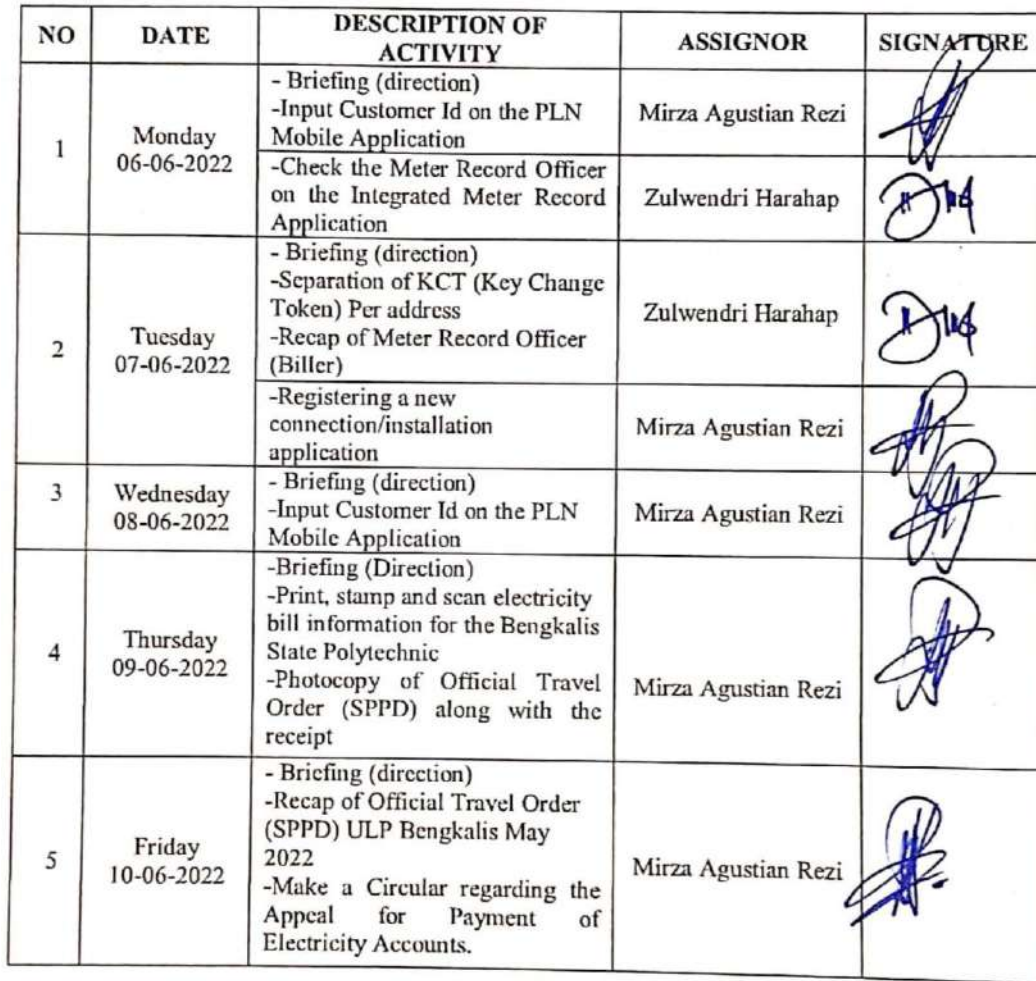 NO DATE DESCRIPTION OF ASSIGNOR SIGNATURE
ACTIVITY
1
Monday
06-06-2022
- Briefing (direction)
-Input Customer Id on the PLN
Mobile Application
Mirza Agustian Rezi
-Check the Meter Record Officer
on the Integrated Meter Record
Application
Zulwendri Harahap
2
Tuesday
07-06-2022
- Briefing (direction)
-Separation of KCT (Key Change
Token) Per address
-Recap of Meter Record Officer
(Biller)
Zulwendri Harahap
-Registering a new
connection/installation
application
Mirza Agustian Rezi
3
Wednesday
08-06-2022
- Briefing (direction)
-Input Customer Id on the PLN
Mobile Application
Mirza Agustian Rezi
4
Thursday
09-06-2022
-Briefing (Direction)
-Print, stamp and scan electricity
bill information for the Bengkalis
State Polytechnic
-Photocopy of Official Travel
Order (SPPD) along with the
receipt
Mirza Agustian Rezi
5
Friday
10-06-2022
- Briefing (direction)
-Recap of Official Travel Order
(SPPD) ULP Bengkalis May
2022
-Make a Circular regarding the
Appeal for Payment of
Electricity Accounts.
Mirza Agustian Rezi